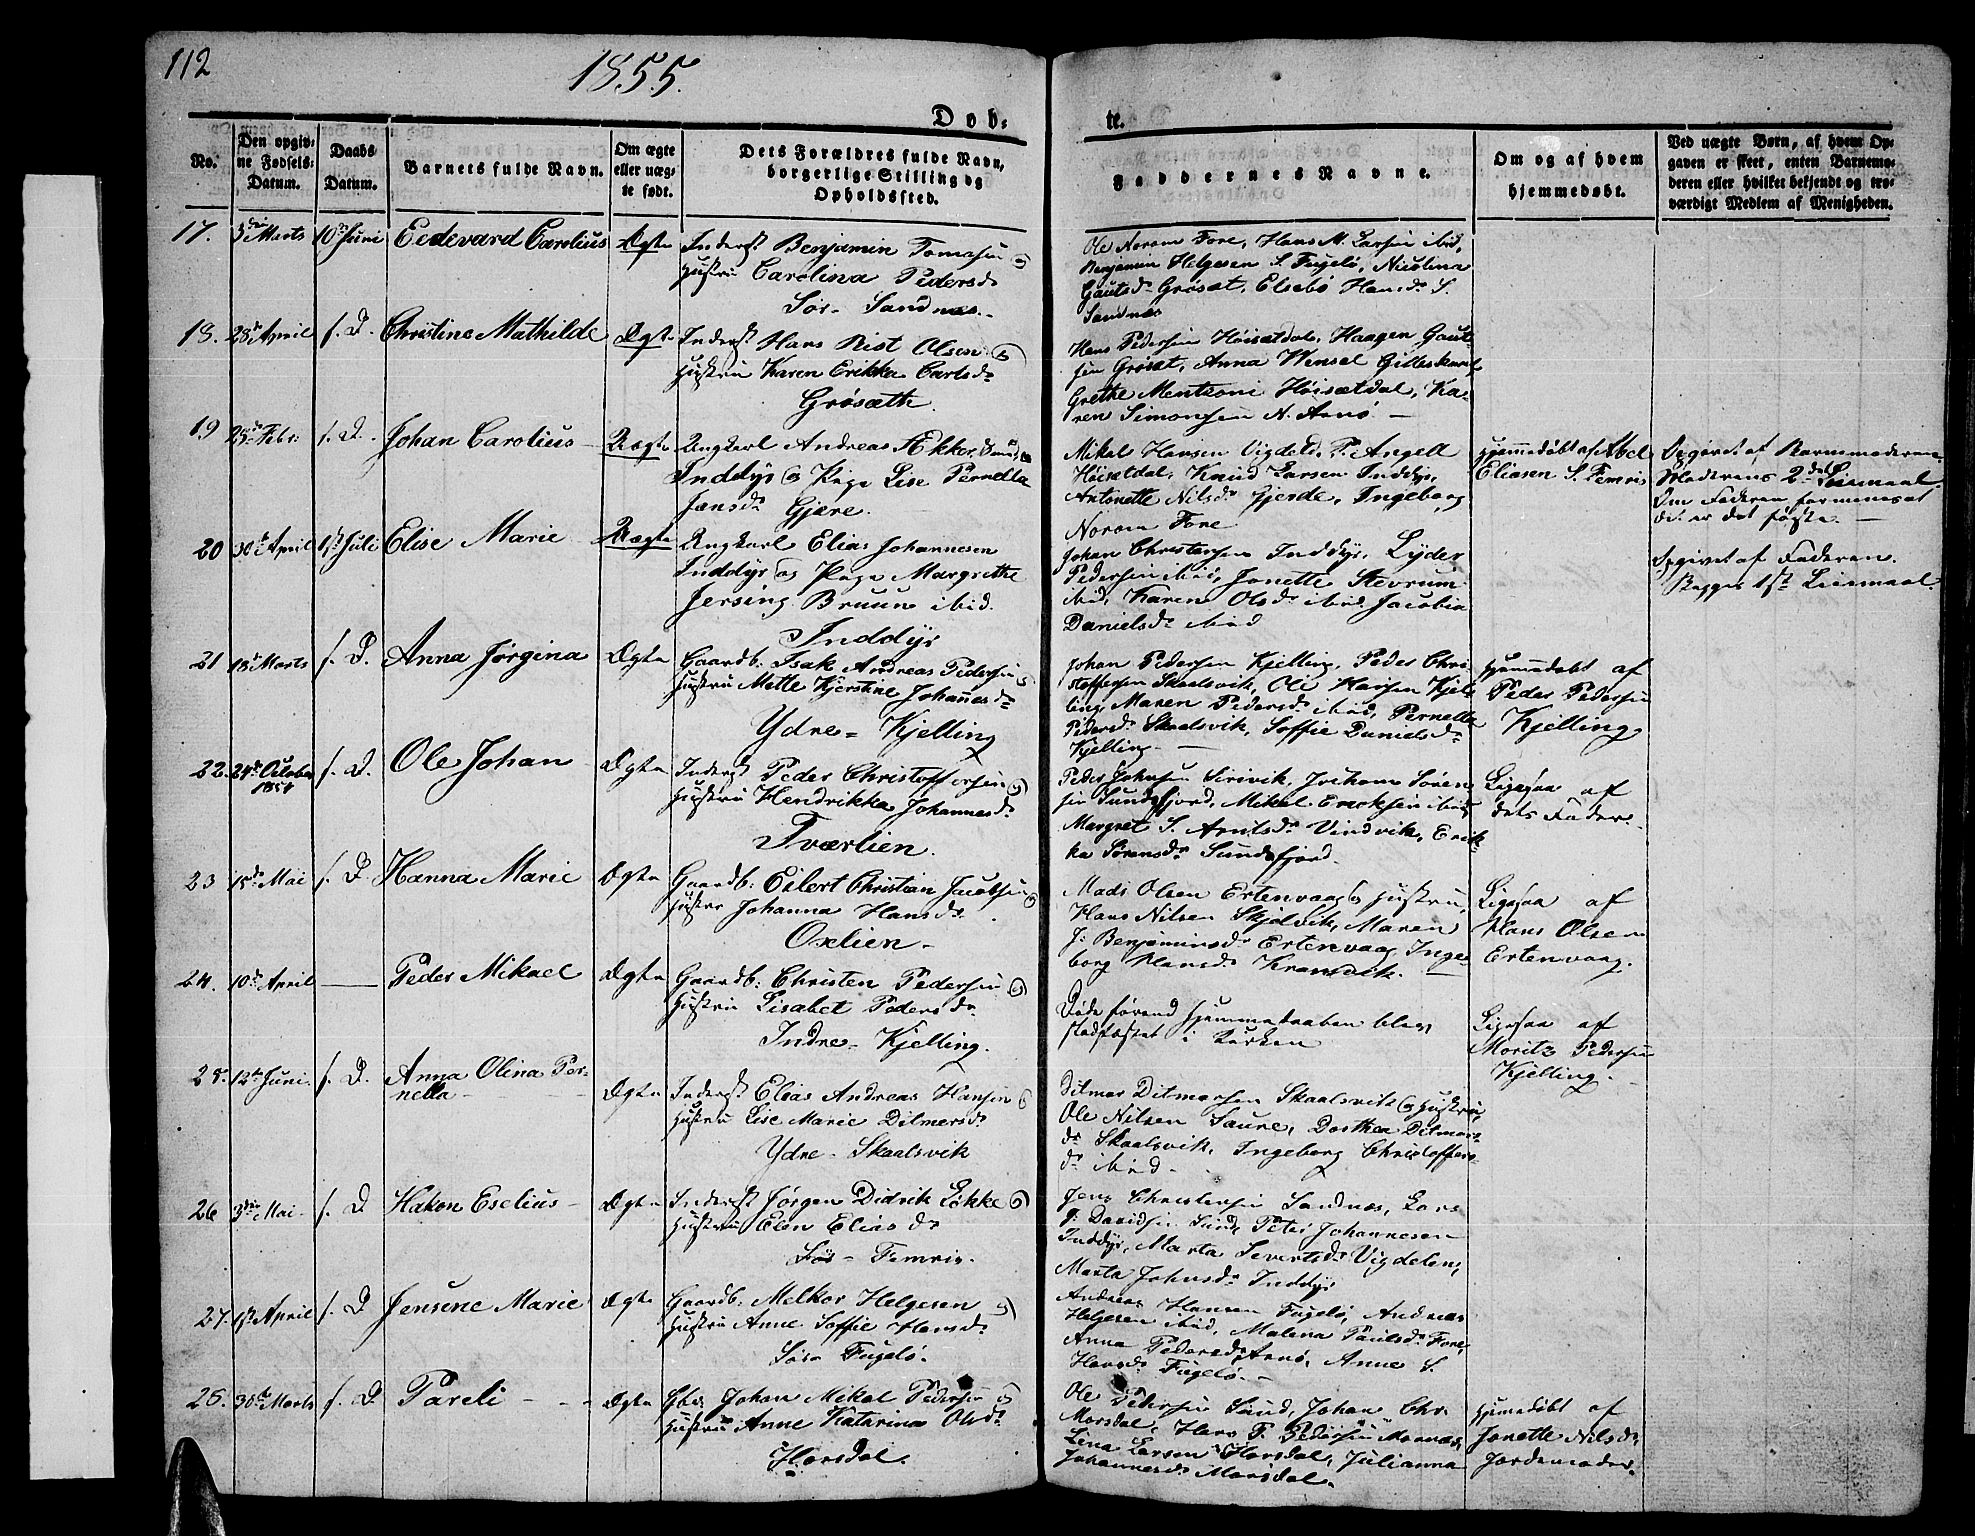 112
1855.
Døb-
te.
No.
Den opgiv-
ne Fødsels-
Datum.
Daabs
Datum.
Barnets fulde Navn.
Om ægte
eller uæg-
te født.
Dets Forældres fulde Navn,
borgerlige Stilling og
Opholdssted.
Faddernes Navne.
Om og af hvem
hjemmedøbt.
Ved uægte Børn, af hvem Op-
gaven er skeet, enten Barnemo-
deren eller hvilket bekjendt og tro-
værdigt Medlem af Menigheden.
17. Marts 10 Juni Eedevard Carolius Ægte
Inderst Benjamin Tomasen og
Hustru Carolina Pedersd
Sør- Sandnæs
Ole Norum Fore, Hans M. Larsen ibid,
Benjamin Helgesen S. Fugelø, Nicolina
Gautsd Grøsæt, Elsebø Hansd S.
Sandnæs
18. 28 April s. D. Christine Mathilde Ægte
Inderst Hans Rist Olsen og
Hustru Karen Erikka Carlsd
Grøsæth.
Hans Pedersen Høisætdal, Haagen Gaut-
sen Grøsæt, Anna Wensel Gilleskaal
Grethe Mentsoni Høisætdal, Ka-
ren Simonsen N. Arnø. —
19 25 Febr: s. D. Johan Carolius Uægte
Ungkarl Andreas Sund
Inddyr og Pige Lise Pernella
Jansd Gjære.
Mikal Hansen Vigdel, P. Angell
Høisetdal, Knud Larsen Inddyr,
Antonette Nilsd Gjerde, Ingeborg
Norom Fore
Hjemmedøbt af Abel
Eliasen S. Femris
Opgivet af Barnemoderen
Moderens 2det Leiermaal
Om Faderen formenes at
det er det første. —
20 30 April 1ste Juli Elise Marie Uægte
Ungkarl Elias Johannesen
Inddyr og Pige Margrethe
Jersing Bruun ibid.
Inddyr
Johan Christensen Inddyr, Lyder
Pedersen ibid, Jonette Stevrum
ibid, Karen Olsd ibid Jacobia
Danielsd ibid
Opgivet af Faderen.
Begges 1ste Leiermaal.
21 18 Marts s. D. Anna Jørgina Ægte
Gaardb: Isak Andreas Pedersen og
Hustru Mette Kjerstine Johanesd
Ydre- Kjelling
Johan Pedersen Kjelling, Peder Chri-
stoffersen Skaalsvik, Ole Hansen Kjel-
ling, Maren Pedersd ibid, Pernella
Pedersd Skaalsvik, Soffie Danielsd
Kjelling —
Hjemmedøbt af
Peder Pedersen
Kjelling
22. 24 October s. D. Ole Johan Ægte
1854
Inderst Peder Christoffersen og
Hustru Hendrikka Johannesd
Tværlien.
Peder Johnsen Sirivik, Jochum Søren-
sen Sundsfjord, Mikal Ericksen ibid
Margret S. Arntsd Vindvik, Erik-
ka Sørensd Sundsfjord.
Ligesaa af
dets Fader.
23 15 Mai s. D Hanna Marie Ægte
Gaardb: Eilert Christian Jacobsen og
Hustru Johanna Hansd
Oxlien —
Mads Olsen Ertenvaag og Hustru,
Hans Nilsen Skjelvik, Maren
J: Benjaminsd Ertenvaag, Inge-
borg Hansd Kransvik.
Ligesaa af
Hans Olsen
Ertenvaag.
24. 10 April — Peder Mikael Ægte
Gaardb: Christen Pedersen og
Hustru Lisabet Pedersd
Indre- Kjelling.
Døde førend Hjemmedaaben blev
stadfæstet i Kirken
Ligesaa af
Moritz Pedersen
Kjelling.
25. 12 Juni s. D. Anna Olina Per-
nella Ægte
Inderst Elias Andreas Hansen og
Hustru Lise Marie Ditmersd
Ydre- Skaalsvik
Ditmar Ditmarsen Skaalsvik og Hustru,
Ole Nilsen Saure, Dorthea Ditmars-
d Skaalsvik, Ingeborg Christoffers-
d ibid.
26 3 Mai s. D Hakon Eselius Ægte
Inderst Jørgen Didrik Løkke og
Hustru Elen Eliasd
Sør- Femris.
Jens Christensen Sandnæs, Lars
P. Davidsen Sund, Peter Johannesen
Inddyr, Marta Sivertsd Vigdelen,
Marta Johnsd Inddyr
27. 1ste April s. D Jensine Marie Ægte
Gaardb: Melkor Helgesen og
Hustru Anne Soffie Hansd
Søre Fugelø.
Andreas Hansen Fugelø, Andreas
Helgesen ibid, Malena Paulsd Fore,
Anna Pedersd Arnø, Anne S.
Hansd Fugelø. —
28. 30 Marts s. D Pareli Ægte
Gbr: Johan Mikal Pedersen og
Hustru Anne Katarina Olsd
Horsdal.
Ole Pedersen Sund, Johan Chr.
Morsdal, Hans P. Pedersen
Lina Larsen Horsdal, Julianna
Johannesd Morsdal.
Hjemmedøbt af
Jonette Nilsd,
Jordemoder.